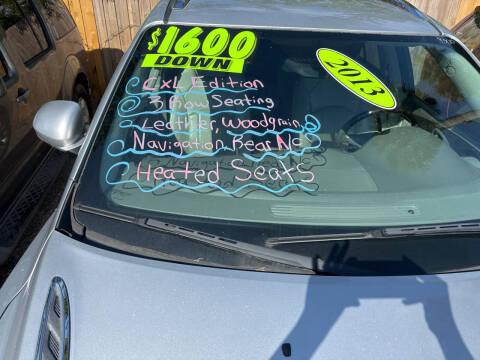 $1600
DOWN
2013
CXL Edition
3 Row Seating
Leather, Woodgrain
Navigation, Rear AC
Heated Seats